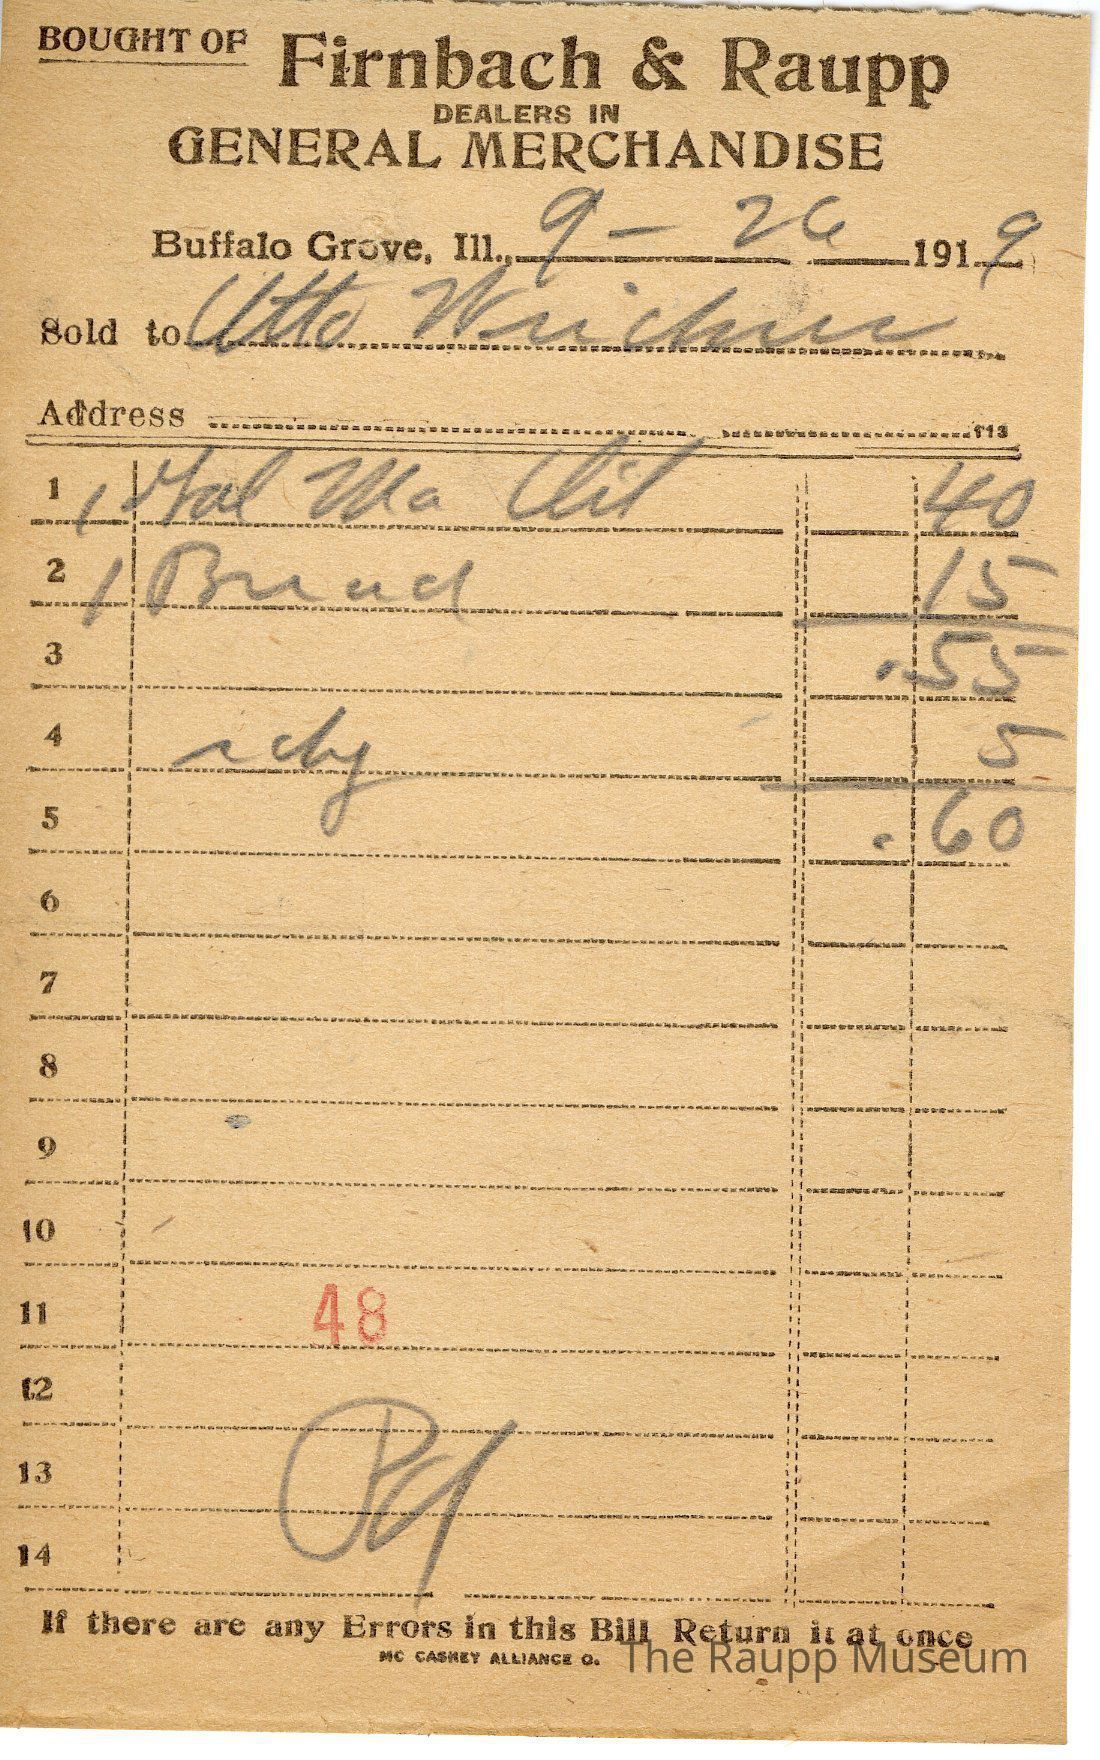 BOUGHT OF Firnbach & Raupp
DEALERS IN
GENERAL MERCHANDISE
Buffalo Grove, Ill., 9 - 26 1919
Sold to Otto
Address
113
1 1 Gal Ma Oil 40
2 1 Bread 15
3 .55
4 5
5 .60
6
7
8
9
10
11 48
12
13
14
If there are any Errors in this Bill Return it at once
MC CASKEY ALLIANCE O.
The Raupp Museum